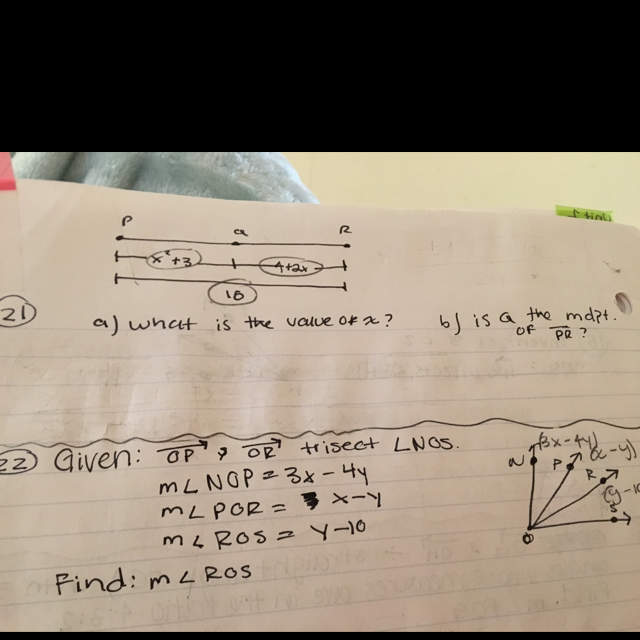 Unit 1
P a R
x²+3 4+2x
18
21 a) what is the value of x? b) is Q the mdpt. OF PR?
22 Given: OP, OR trisect ∠NOS.
m∠NOP = 3x - 4y
m∠POR = x-y
m∠ROS = y-10
Find: m∠ROS
(3x-4y)
N P (x-y)
R
(y-10
S
O